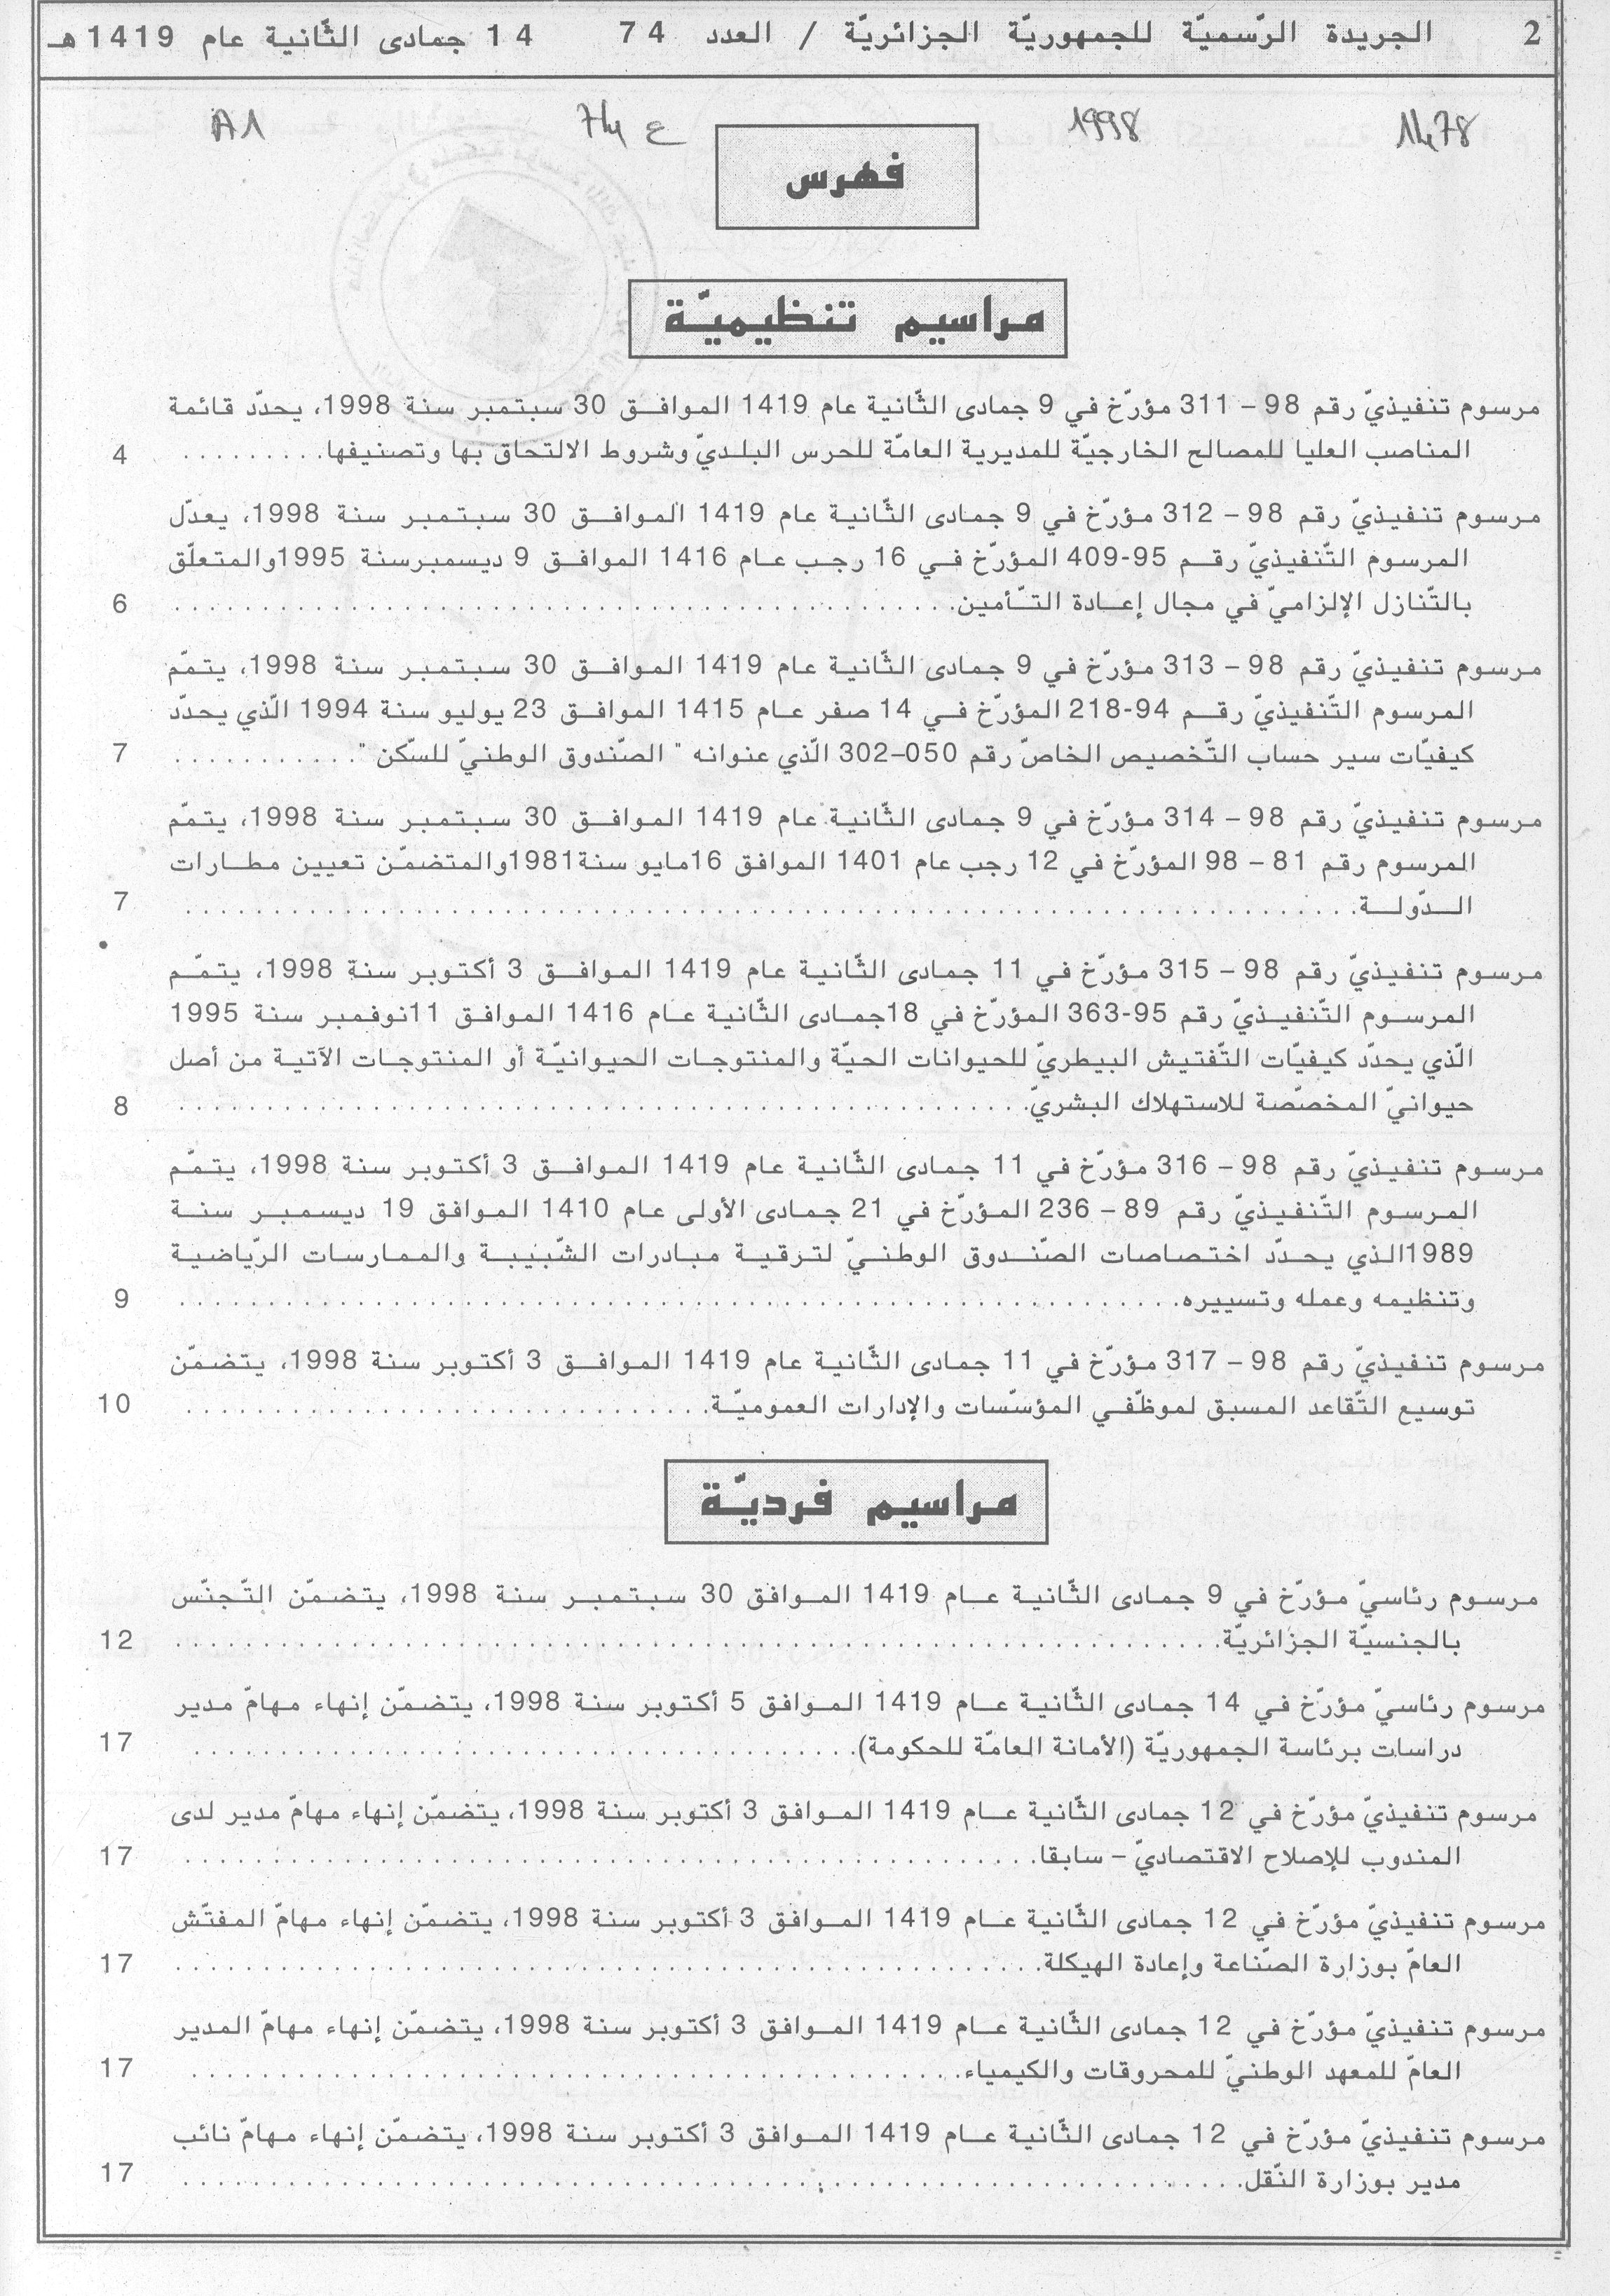 2 الجريدة الرّسميّة للجمهوريّة الجزائريّة / العدد 74 14 جمادى الثّانية عام 1419 هـ
1478 1998 ع 74 A1
فهرس
مراسيم تنظيميّة
مرسوم تنفيذيّ رقم 98 – 311 مؤرّخ في 9 جمادى الثّانية عام 1419 الموافق 30 سبتمبر سنة 1998، يحدّد قائمة
المناصب العليا للمصالح الخارجيّة للمديرية العامّة للحرس البلديّ وشروط الالتحاق بها وتصنيفها......... 4
مرسوم تنفيذيّ رقم 98 – 312 مؤرّخ في 9 جمادى الثّانية عام 1419 الموافق 30 سبتمبر سنة 1998، يعدّل
المرسوم التّنفيذيّ رقم 95-409 المؤرّخ في 16 رجب عام 1416 الموافق 9 ديسمبر سنة 1995 والمتعلّق
بالتّنازل الإلزاميّ في مجال إعادة التّأمين......... 6
مرسوم تنفيذيّ رقم 98 – 313 مؤرّخ في 9 جمادى الثّانية عام 1419 الموافق 30 سبتمبر سنة 1998، يتمّم
المرسوم التّنفيذيّ رقم 94-218 المؤرّخ في 14 صفر عام 1415 الموافق 23 يوليو سنة 1994 الّذي يحدّد
كيفيّات سير حساب التّخصيص الخاصّ رقم 050–302 الّذي عنوانه " الصّندوق الوطنيّ للسّكن "......... 7
مرسوم تنفيذيّ رقم 98 – 314 مؤرّخ في 9 جمادى الثّانية عام 1419 الموافق 30 سبتمبر سنة 1998، يتمّم
المرسوم رقم 81 – 98 المؤرّخ في 12 رجب عام 1401 الموافق 16 مايو سنة 1981 والمتضمّن تعيين مطارات
الدّولة......... 7
مرسوم تنفيذيّ رقم 98 – 315 مؤرّخ في 11 جمادى الثّانية عام 1419 الموافق 3 أكتوبر سنة 1998، يتمّم
المرسوم التّنفيذيّ رقم 95-363 المؤرّخ في 18 جمادى الثّانية عام 1416 الموافق 11 نوفمبر سنة 1995
الّذي يحدّد كيفيّات التّفتيش البيطريّ للحيوانات الحيّة والمنتوجات الحيوانيّة أو المنتوجات الآتية من أصل
حيوانيّ المخصّصة للاستهلاك البشريّ......... 8
مرسوم تنفيذيّ رقم 98 – 316 مؤرّخ في 11 جمادى الثّانية عام 1419 الموافق 3 أكتوبر سنة 1998، يتمّم
المرسوم التّنفيذيّ رقم 89 – 236 المؤرّخ في 21 جمادى الأولى عام 1410 الموافق 19 ديسمبر سنة
1989 الذي يحدّد اختصاصات الصّندوق الوطنيّ لترقية مبادرات الشّبيبة والممارسات الرّياضية
وتنظيمه وعمله وتسييره......... 9
مرسوم تنفيذيّ رقم 98 – 317 مؤرّخ في 11 جمادى الثّانية عام 1419 الموافق 3 أكتوبر سنة 1998، يتضمّن
توسيع التّقاعد المسبق لموظّفي المؤسّسات والإدارات العموميّة......... 10
مراسيم فرديّة
مرسوم رئاسيّ مؤرّخ في 9 جمادى الثّانية عام 1419 الموافق 30 سبتمبر سنة 1998، يتضمّن التّجنّس
بالجنسيّة الجزائريّة......... 12
مرسوم رئاسيّ مؤرّخ في 14 جمادى الثّانية عام 1419 الموافق 5 أكتوبر سنة 1998، يتضمّن إنهاء مهامّ مدير
دراسات برئاسة الجمهوريّة (الأمانة العامّة للحكومة)......... 17
مرسوم تنفيذيّ مؤرّخ في 12 جمادى الثّانية عام 1419 الموافق 3 أكتوبر سنة 1998، يتضمّن إنهاء مهامّ مدير لدى
المندوب للإصلاح الاقتصاديّ – سابقا......... 17
مرسوم تنفيذيّ مؤرّخ في 12 جمادى الثّانية عام 1419 الموافق 3 أكتوبر سنة 1998، يتضمّن إنهاء مهامّ المفتّش
العامّ بوزارة الصّناعة وإعادة الهيكلة......... 17
مرسوم تنفيذيّ مؤرّخ في 12 جمادى الثّانية عام 1419 الموافق 3 أكتوبر سنة 1998، يتضمّن إنهاء مهامّ المدير
العامّ للمعهد الوطنيّ للمحروقات والكيمياء......... 17
مرسوم تنفيذيّ مؤرّخ في 12 جمادى الثّانية عام 1419 الموافق 3 أكتوبر سنة 1998، يتضمّن إنهاء مهامّ نائب
مدير بوزارة النّقل......... 17